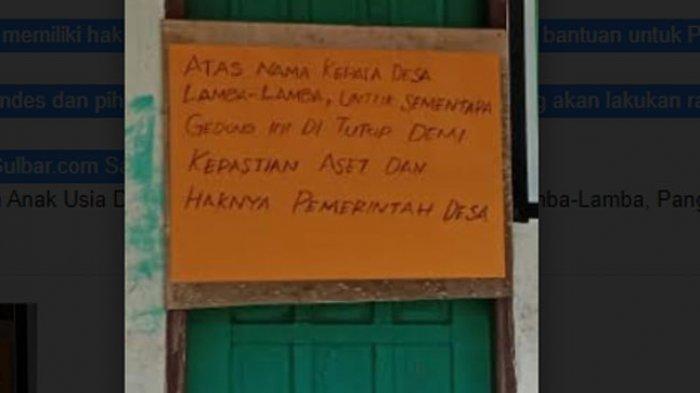 memiliki hak
bantuan untuk P
ATAS NAMA KEPALA DESA
LAMBA-LAMBA, UNTUK SEMENTARA
GEDUNG INI DI TUTUP DEMI
KEPASTIAN ASET DAN
HAKNYA PEMERINTAH DESA
ndes dan pih
akan lakukan
Sulbar.com Sa
Anak Usia D
mba-Lamba, Pang